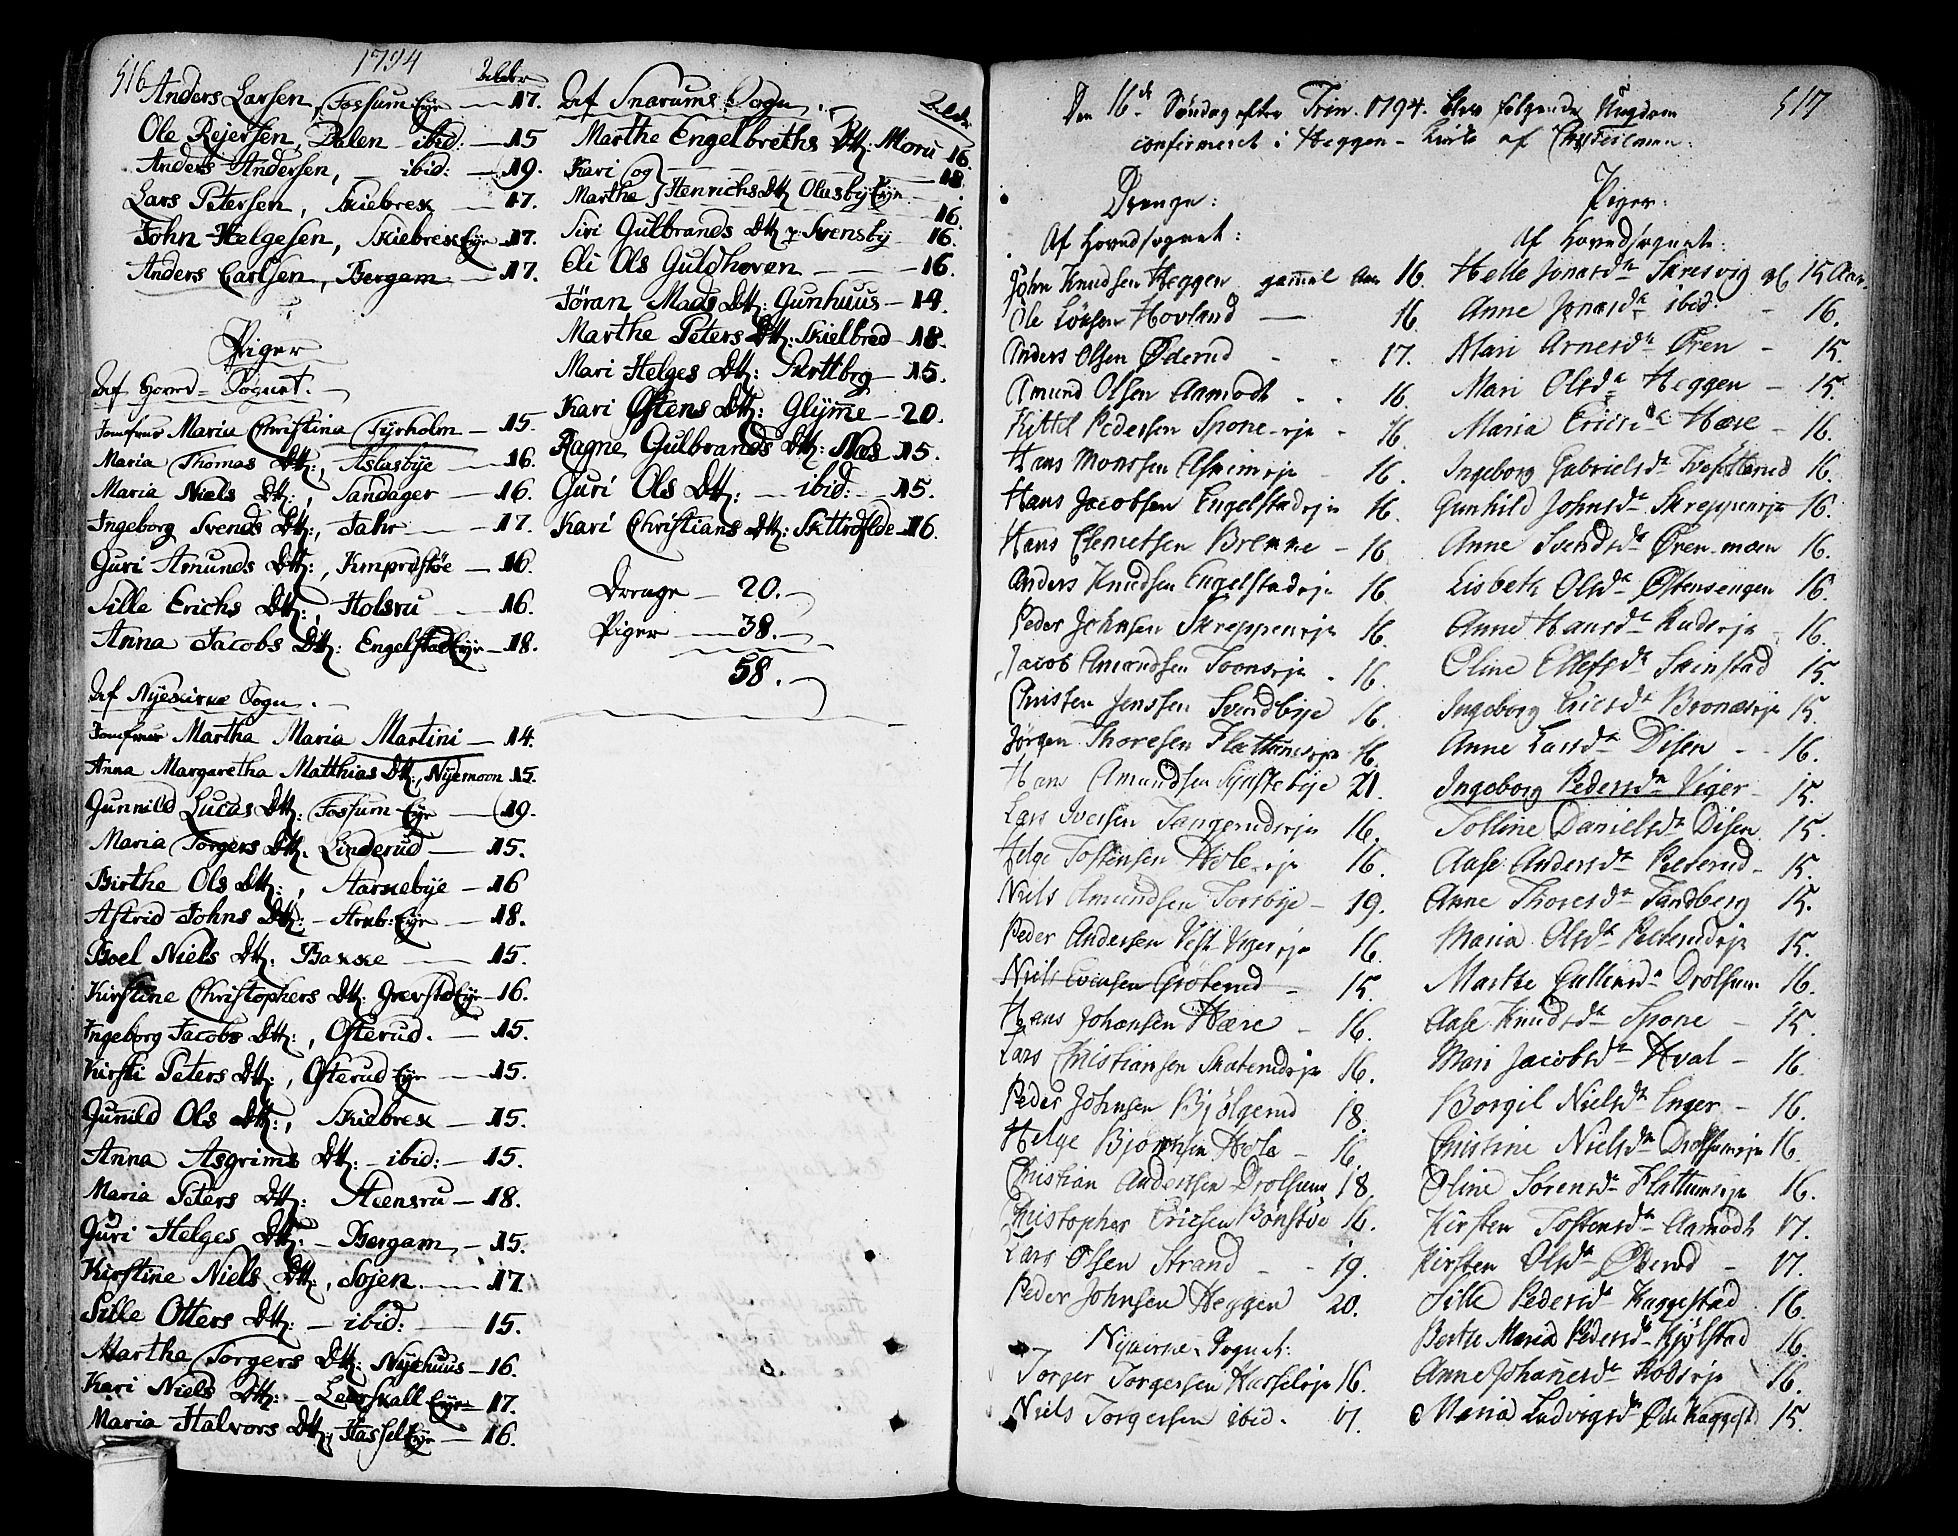 516
1794
Alder
Anders Larsen, Fossum Eye — 17.
Ole Rejersen, Dalen — ibid: — 15
Anders Andersen, — ibid: — 19.
Lars Petersen, Skiebrek — 17.
John Helgesen, Skiebrek Eye — 17.
Anders Carlsen, Bergam — 17.
Piger
Af Hoved-Sognet.
Jomfrue Maria Christina Fyrholm — 15.
Maria Thomas Dtt:, Aslasbye — 16.
Maria Niels Dtt:, Sandager — 16.
Ingeborg Svends Dtt:, Jahr — 17.
Guri Amunds Dtt:, — 16.
Sille Erichs Dtt:, Holsru — 16.
Anna Jacobs Dtt: Engelstad Eye — 18.
Af Nyekirke Sogn.
Jomfrue Martha Maria Martini — 14.
Anna Margaretha Matthias Dtt:, Nyemoen 15.
Gunnild Lucas Dtt: Fossum Eye — 19.
Maria Torgers Dtt. Linderud — 15.
Birthe Ols Dtt:, Starkebye — 16
Astrid Johns Dtt: — Eye — 18.
Boel Niels Dtt: Bakke — 15.
Kirstine Christophers Dtt: Eye — 16.
Ingeborg Jacobs Dtt:, Osterud. — 15.
Kirsti Peters Dtt:, Osterud Eye — 15.
Gunild Ols Dtt:, Skiebrek — 15.
Anna Asgrims Dtt: — ibid: — 15.
Maria Peters Dtt: Steensru — 18.
Guri Helges Dtt: — Bergam, — 15.
Kirstine Niels Dtt:, Sojen. — 17.
Sille Otters Dtt: — ibid: 15.
Marthe Torgers Dtt: Nyehuus — 16.
Kari Niels Dtt: — Leerskall Eye — 17.
Maria Halvors Dtt: Hassel Eye — 16.
Af Snarums Sogn.
Alder
Marthe Engelbreths Dtt: Moru 16.
Kari og — 18
Marthe Henrichs Dtt Olasby Eye — 16.
Siri Gulbrands Dtt: Svensby — 16.
Eli Ols Guldhoven — 16.
Jöran Mads Dtt: Gunhuus — 19.
Marthe Peters Dtt: Skielbred — 18.
Mari Helges Dtt: — 15.
Kari Østens Dtt: Glymme — 20.
Ragne Gulbrands Dtt: Næs 15.
Guri Ols Dtt: — ibid: — 15.
Kari Christians Dtt: 16.
Drenge — 20.
Piger — 38.
58.
517
Den 16de Søndag efter Trin. 1794. blev følgende Ungdom
confirmeret i Heggen-Kirke af
Drenge:
Af Hovedsognet:
John Knudsen Heggen gammel Aar 16.
Ole Larsen Hovland — 16.
Anders Olsen Øderud - - 17.
Amund Olsen Aamodt - - 16.
Kittel Pedersen Spone-eje - 16.
Hans Monssen Askimeje - 16.
Hans Jacobsen Engelstadeje 16.
Hans Brenne - 16.
Anders Knudsen Engelstadeje 16.
Peder Johnsen Skreppeneje 16.
Jacob Amundsen - 16.
Christen Jenssen Svendbye 16.
Jørgen Thoresen Flattumseje 16.
Hans Amundsen 21.
Lars Iversen Tangerudseje 16.
Helge Tostensen Hole-eje 16.
Niels Amundsen Torsbye - 19.
Peder Andersen Vest Vigereje 16.
Niels Evensen Grøterud - 15.
Hans Johansen Hære - 16.
Lars Christiansen 16.
Peder Johnsen Bjølgerud 18.
Helge Bjørnsen Hole - 16.
Christian Anderssen Drolsum 18.
Christopher Ericsen 16.
Lars Olsen Strand - - 19.
Peder Johnsen Heggen 20.
Nykirke-Sognet:
Torger Torgersen Hasseleje 16.
Niels Torgersen ibid. 17.
Piger:
Af Hovedsognet:
Helle Jonsdr Skresvig gl 15 Aar.
Anne Jonsdr ibid. - 16.
Mari Arnesdr Øren - 15.
Mari Olsdr Heggen - 15.
Maria Ericsdr Hære - 16.
Ingeborg Gabrielsdr 16.
Gunhild Johnsdr Skreppeneje 16.
Anne Svendsdr Øren-moen 16.
Lisbeth Olsdr Østensengen 16.
Anne Hansdr Rudseje - 16.
Oline Ellefsdr Skinstad 15.
Ingeborg Ericsdr 15.
Anne Larsdr Disen - - 16.
Ingeborg Pedersdr Viger - 15.
Tolline Danielsdr Disen. 15.
Aase Andersdr Rederud - 15.
Anne Thoresdr Sandberg 15.
Maria Olsdr Rederudeje 15.
Marthe Gullicsdr Drolsum 16.
Aase Knudsdr Spone - 15.
Mari Jacobsdr Hval - 16.
Borgil Nielsdr Enger - 16.
Christine Nielsdr Drolsumeje 16.
Oline Sørensdr Flattumseje 16.
Kirsten Tostensdr Aamodt 17.
Kirsten Olsdr Øderud - 17.
Sille Pedersdr Kaggestad 16.
Berthe Maria Pedersdr Kjølstad 16.
Anne Johannesdr 16.
Maria Ludvigsdr Kaggest. 15.